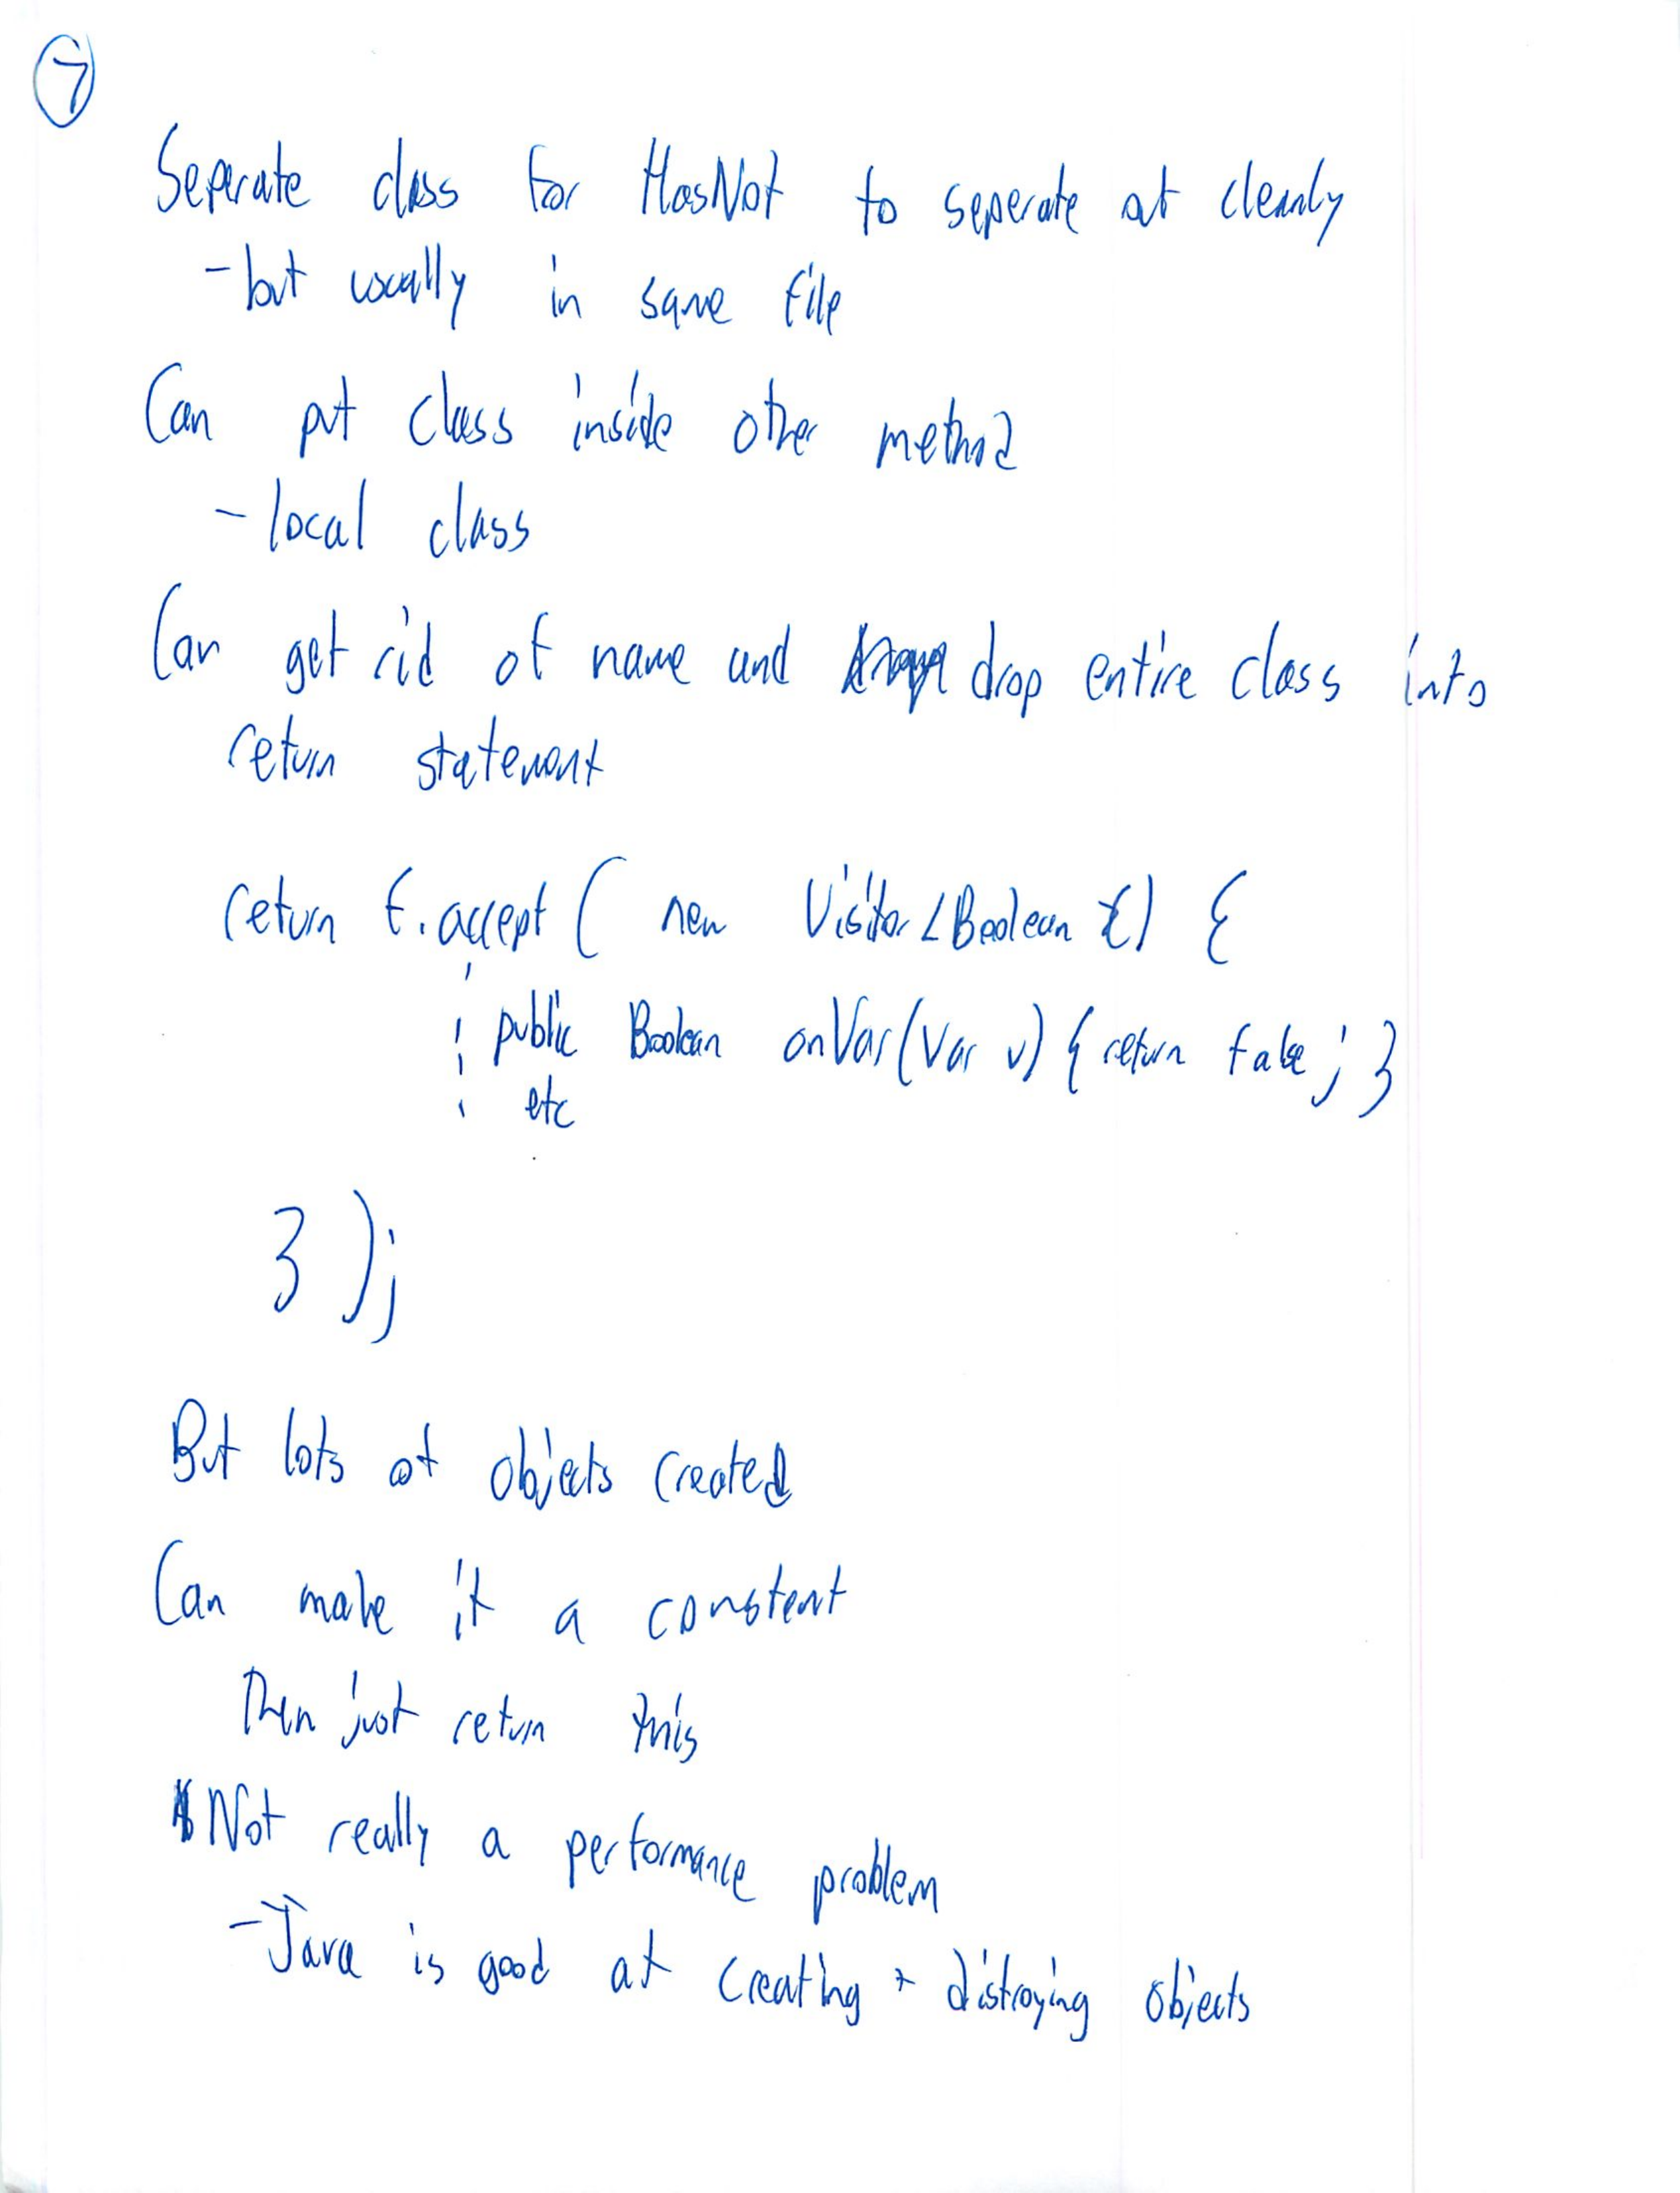 7
Seperate class for HasNot to seperate at cleanly
- but usually in same file
Can put class inside other method
- local class
Can get rid of name and drop entire class into
return statement
return f.accept ( new Visitor <Boolean >() {
public Boolean onVar(Var v) { return false; }
etc
} );
But lots of objects created
Can make it a constent
Then just return this
Not really a performance problem
- Java is good at creating + distroying objects